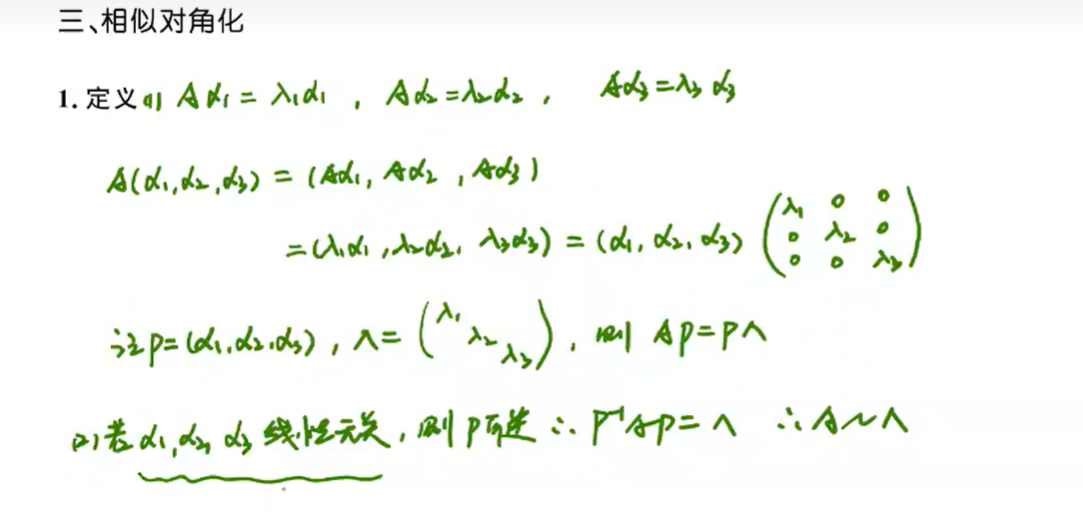 三、相似对角化
1. 定义 (1) Aα₁ = λ₁α₁ , Aα₂ = λ₂α₂ , Aα₃ = λ₃α₃
A(α₁, α₂, α₃) = (Aα₁, Aα₂ , Aα₃)
= (λ₁α₁ , λ₂α₂, λ₃α₃) = (α₁, α₂, α₃) (λ₁ 0 0 0 λ₂ 0 0 0 λ₃)
记 P = (α₁, α₂, α₃) , Λ = (λ₁ λ₂ λ₃) , 则 AP = PΛ
(2) 若 α₁, α₂, α₃ 线性无关 , 则 P 可逆 ∴ P⁻¹AP = Λ ∴ A ~ Λ